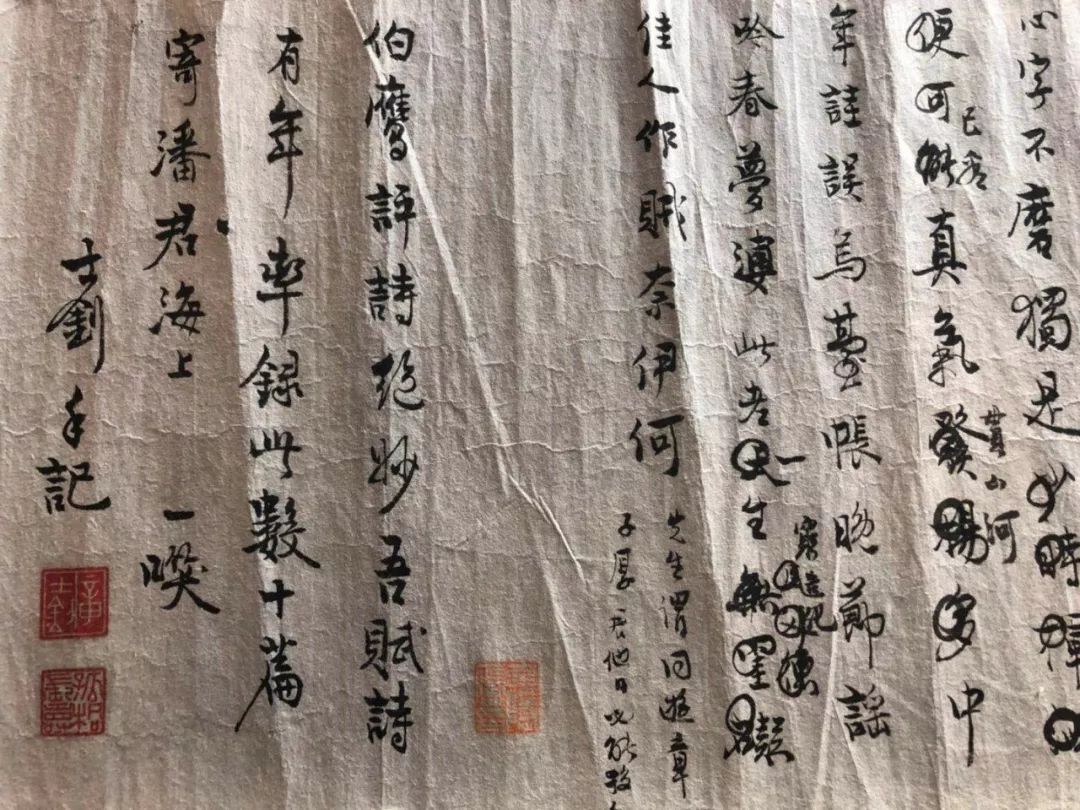 心字不磨獨是少時
便可能真氣發揚多中
已
貫山河
年註誤烏臺帳晚節謡
吟春夢婆此老一生無罣礙
佳人作賊奈伊何
先生謂同遊章
子厚君他日必能殺人
伯鷹評詩絶妙吾賦詩
有年率錄此數十篇
寄潘君海上一噱
士釗手記